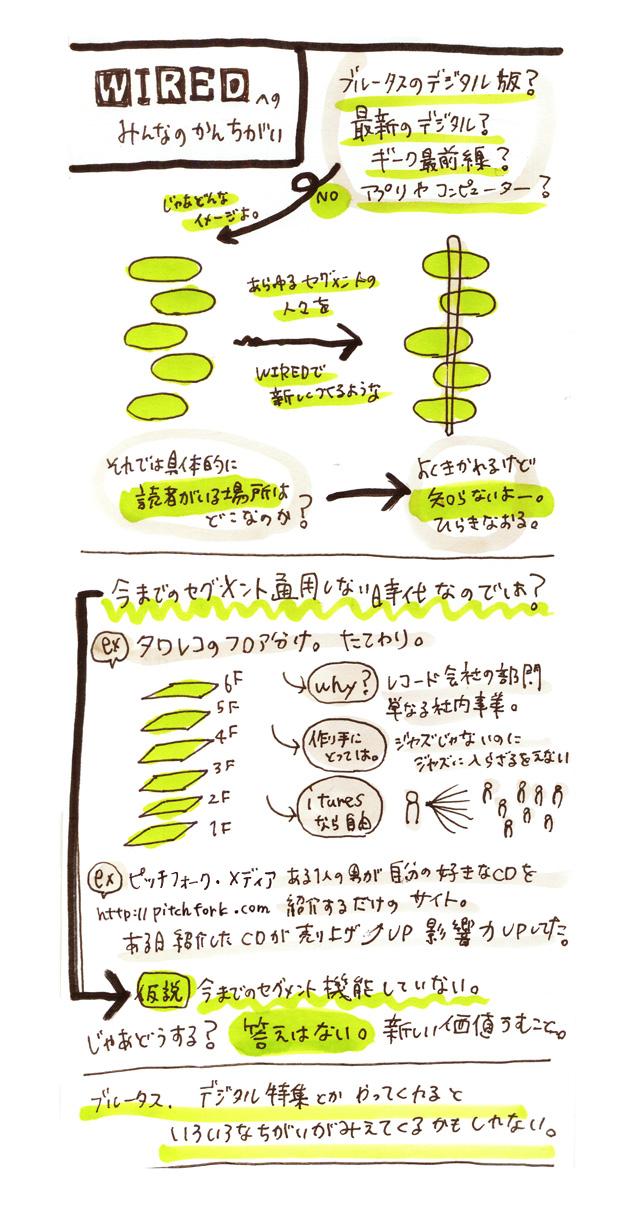 WIREDへの
みんなのかんちがい
ブルータスのデジタル版?
最新のデジタル?
ギーク最前線?
アプリやコンピューター?
NO
じゃあどんな
イメージよ。
あらゆるセグメントの
人々を
WIREDで
新しくつくるような
それでは具体的に
読者がいる場所は
どこなのか?
よくきかれるけど
知らないよー。
ひらきなおる。
今までのセグメント通用しない時代なのでは?
ex タワレコのフロア分け。たてわり。
6F
5F
4F
3F
2F
1F
why?
レコード会社の部門
単なる社内事業。
作り手に
とっては。
ジャズじゃないのに
ジャズに入らざるをえない
itunes
なら自由
ex ピッチフォーク・メディア ある1人の男が自分の好きなCDを
http://pitchfork.com 紹介するだけのサイト。
ある日紹介したCDが売り上げUP 影響力UPしてた。
仮説 今までのセグメント機能していない。
じゃあどうする? 答えはない。 新しい価値うむこと。
ブルータス、デジタル特集とかやってくれると
いろいろなちがいがみえてくるかもしれない。